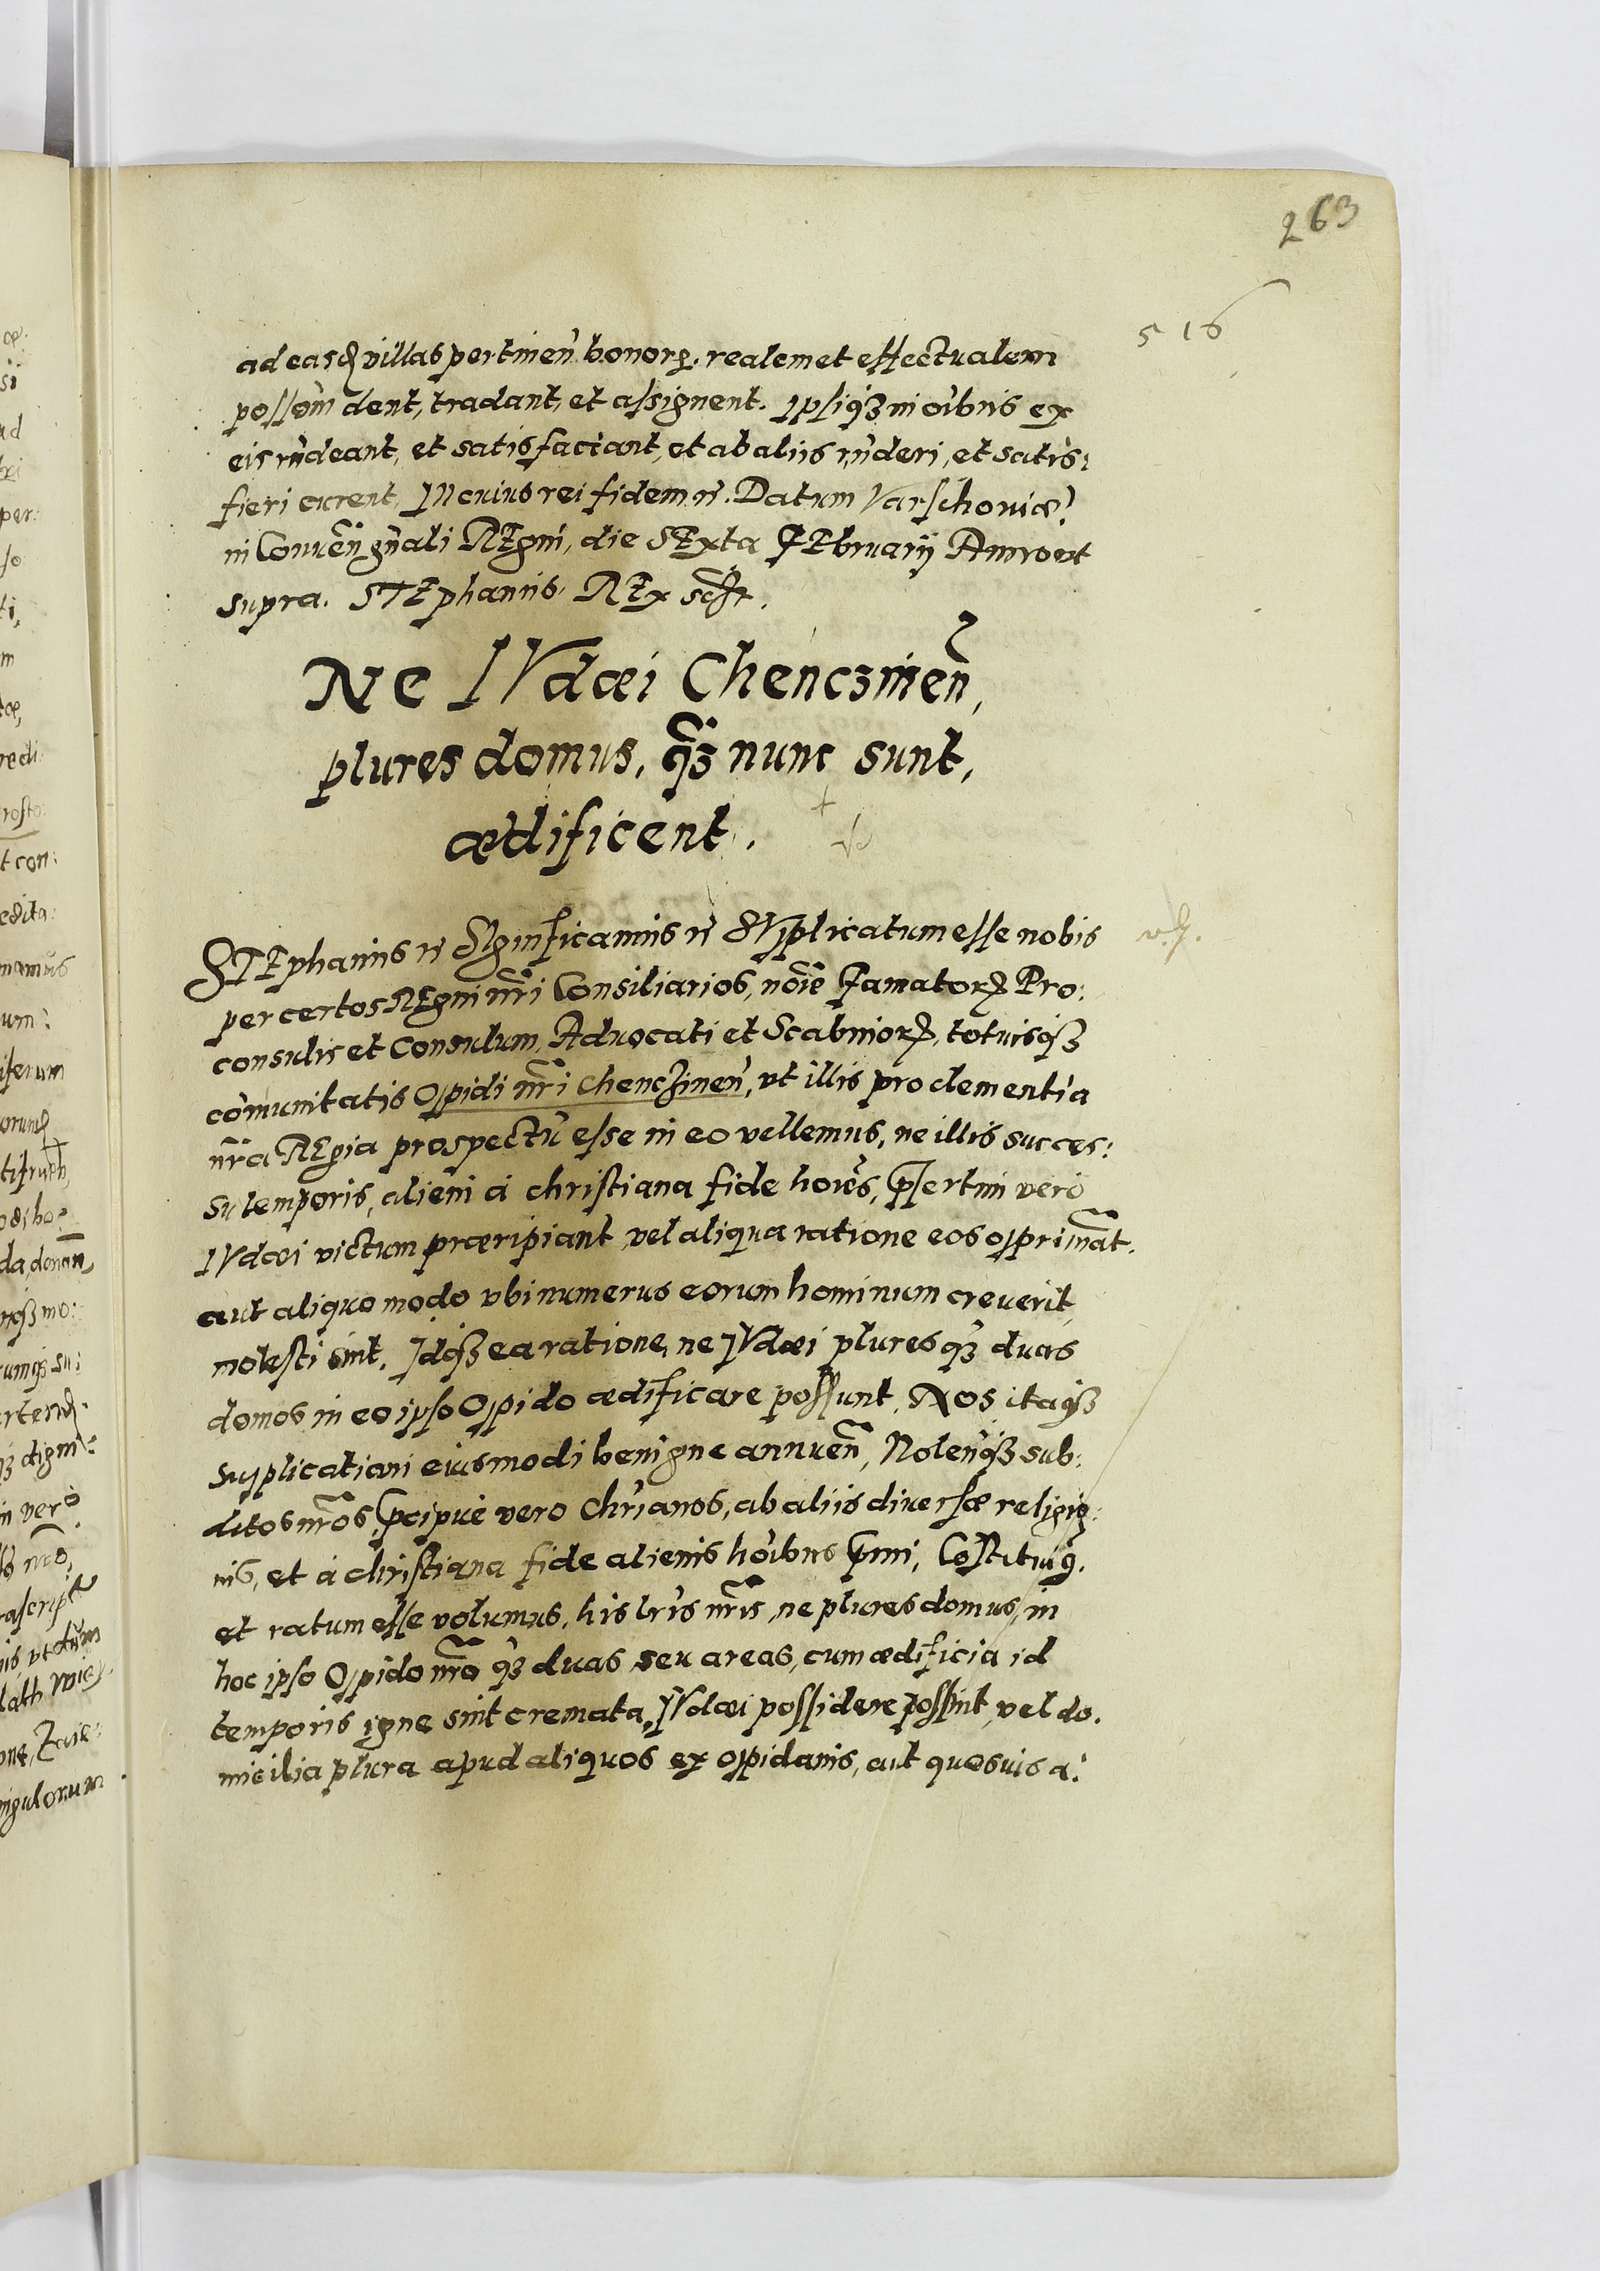 263
516
ad easq villas pertineñ bonorꝝ. realem et effectualem
possoñi dent, tradant, et assignent. Ipsiqꝫ in oĩbus ex
eis rñdeant, et satisfaciant, et ab aliis rñderi, et satis:
fieri curent, In cuius rei fidem ñ. Datum Varschoviæ,
in Conueñ gñali REgni, die SExta FEbruarij Anno vt
supra. STEphanus REx sst.
Ne IVdæi Chenczineñ,
plures domus, qꝫ nunc sunt,
ædificent.
STEphanus ñ SIgnificamus ñ SVpplicatum esse nobis
per certos REgni nr̃i Consiliarios, noĩe Famatorꝝ Pro:
consulis et Consulum, Aduocati et Scabinorꝝ, totiusqꝫ
com̃unitatis Oppidi nr̃i Chenczineñ, vt illis pro clementia
nr̃a REgia prospectũ esse in eo vellemus, ne illis succes:
su temporis, alieni à christiana fide hoĩes, p̃sertim vero
IVdæi victum præripiant, vel aliqua ratione eos opprimãt.
aut aliquo modo vbi numerus eorum hominum creuerit,
molesti sint. Idqꝫ ea ratione, ne IVdæi plures qꝫ duas
domos in eo ipso Oppido ædificare possunt, NOs itaqꝫ
supplicationi eiusmodi benigne annueñ, Noleñqꝫ sub:
ditos nr̃os, p̃cipue vero Chr̃ianos, ab aliis diuersæ religio:
nis, et à christiana fide alienis hoĩbus p̃mi, Cõstituiꝰ.
et ratum esse volumus, his lr̃is nr̃is, ne plures domus, in
hoc ipso Oppido nr̃o qꝫ duas seu areas, cum ædificia id
temporis igne sint cremata, IVdæi possidere possint, vel do.
micilia plura apud aliquos ex oppidanis, aut quosuis a: